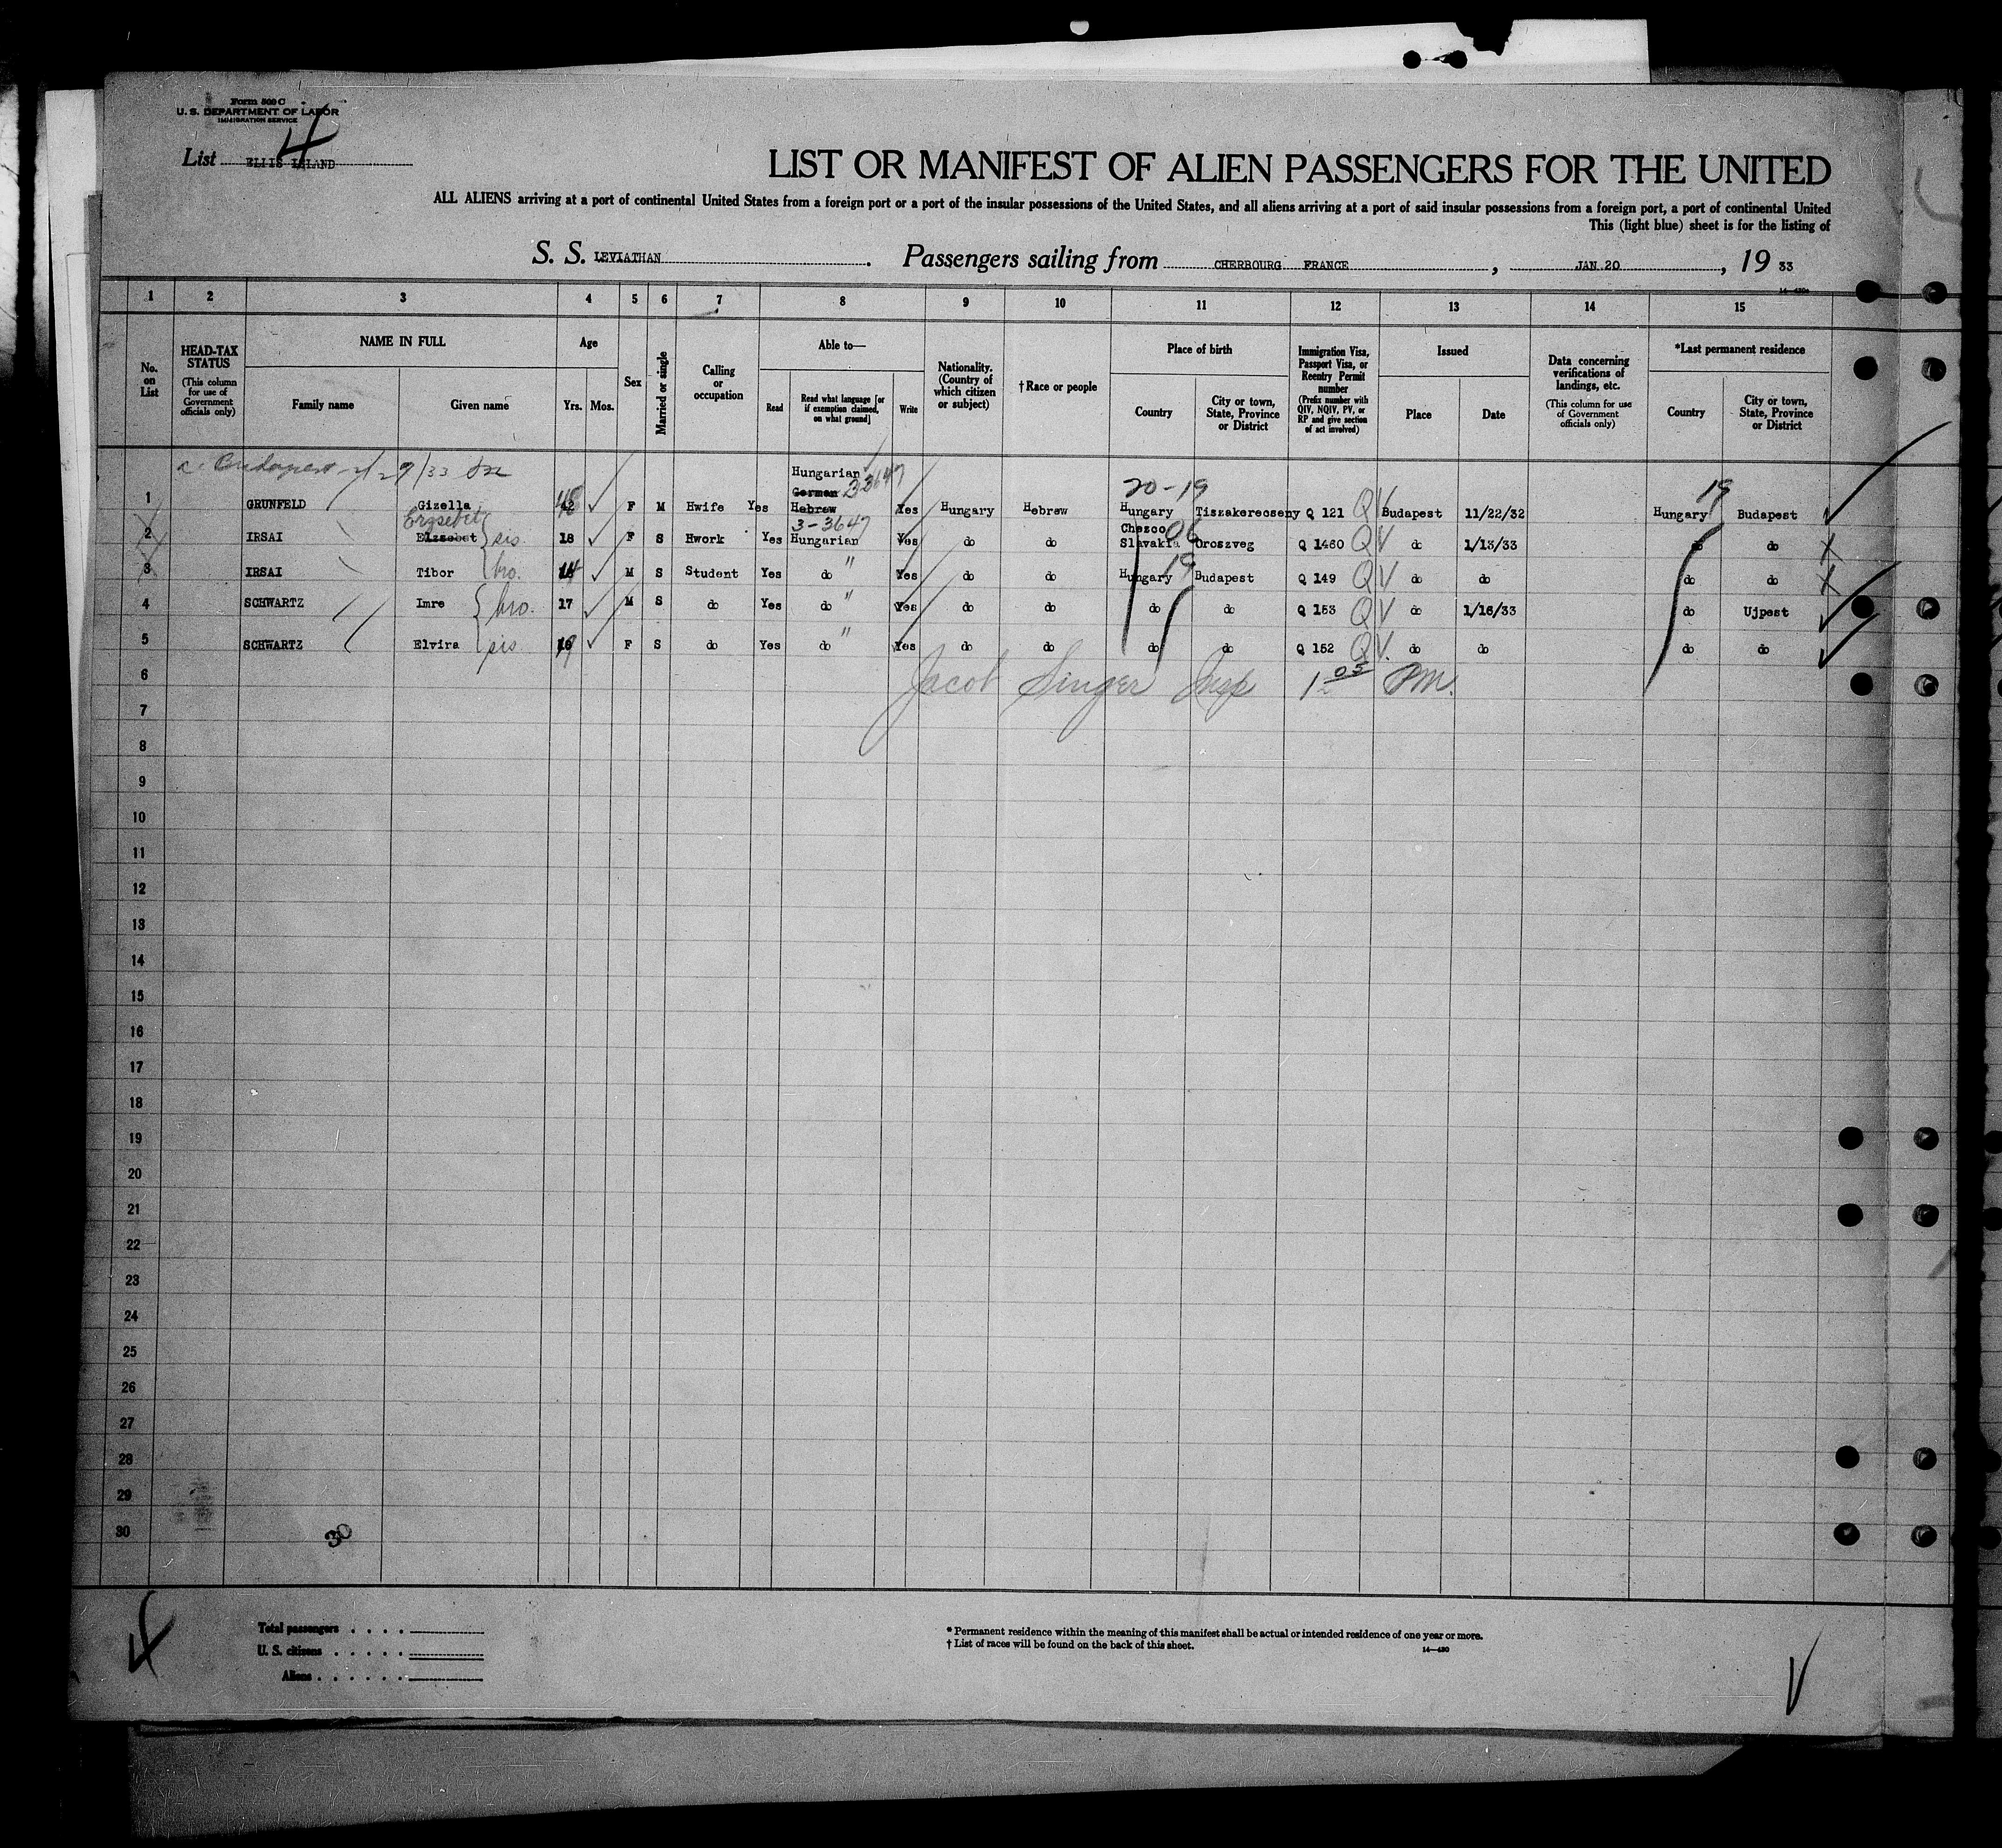 Form 500 C
U. S. DEPARTMENT OF LABOR
IMMIGRATION SERVICE
4
List ELLIS ISLAND
LIST OR MANIFEST OF ALIEN PASSENGERS FOR THE UNITED
ALL ALIENS arriving at a port of continental United States from a foreign port or a port of the insular possessions of the United States, and all aliens arriving at a port of said insular possessions from a foreign port, a port of continental United
This (light blue) sheet is for the listing of
S. S. LEVIATHAN. Passengers sailing from CHERBOURG FRANCE, JAN 20, 19 33
1 2 3 4 5 6 7 8 9 10 11 12 13 14 15
No. on List
HEAD-TAX STATUS
(This column for use of Government officials only)
NAME IN FULL
Family name
Given name
Age
Yrs. Mos.
Sex
Married or single
Calling or occupation
Able to—
Read
Read what language [or if exemption claimed, on what ground]
Write
Nationality. (Country of which citizen or subject)
†Race or people
Place of birth
Country
City or town, State, Province or District
Immigration Visa, Passport Visa, or Reentry Permit number
(Prefix number with QIV, NQIV, PV, or RP and give section of act involved)
Issued
Place
Date
Data concerning verifications of landings, etc.
(This column for use of Government officials only)
*Last permanent residence
Country
City or town, State, Province or District
Budapest 2/29/33
Hungarian
German 33647
20-19 19
1 GRUNFELD Gizella 48 F M Hwife Yes Hebrew Yes Hungary Hebrew Hungary Tiszakerecseny Q 121 QV Budapest 11/22/32 Hungary Budapest
Erzsebet 3-3647 Chezco 06
2 IRSAI Elzsebet sis. 18 F S Hwork Yes Hungarian Yes do do Slavakia Oroszveg Q 1460 QV do 1/13/33 do do X
3 IRSAI Tibor bro. 14 M S Student Yes do " Yes do do Hungary 19 Budapest Q 149 QV do do do do X
4 SCHWARTZ Imre bro. 17 M S do Yes do " Yes do do do do Q 153 QV do 1/16/33 do Ujpest
5 SCHWARTZ Elvira sis 19 F S do Yes do " Yes do do do do Q 152 QV. do do do do
6 Jacob Singer Insp 1 05 PM.
7
8
9
10
11
12
13
14
15
16
17
18
19
20
21
22
23
24
25
26
27
28
29
30
30
Total passengers
U. S. citizens
Aliens
* Permanent residence within the meaning of this manifest shall be actual or intended residence of one year or more.
† List of races will be found on the back of this sheet.
14—430